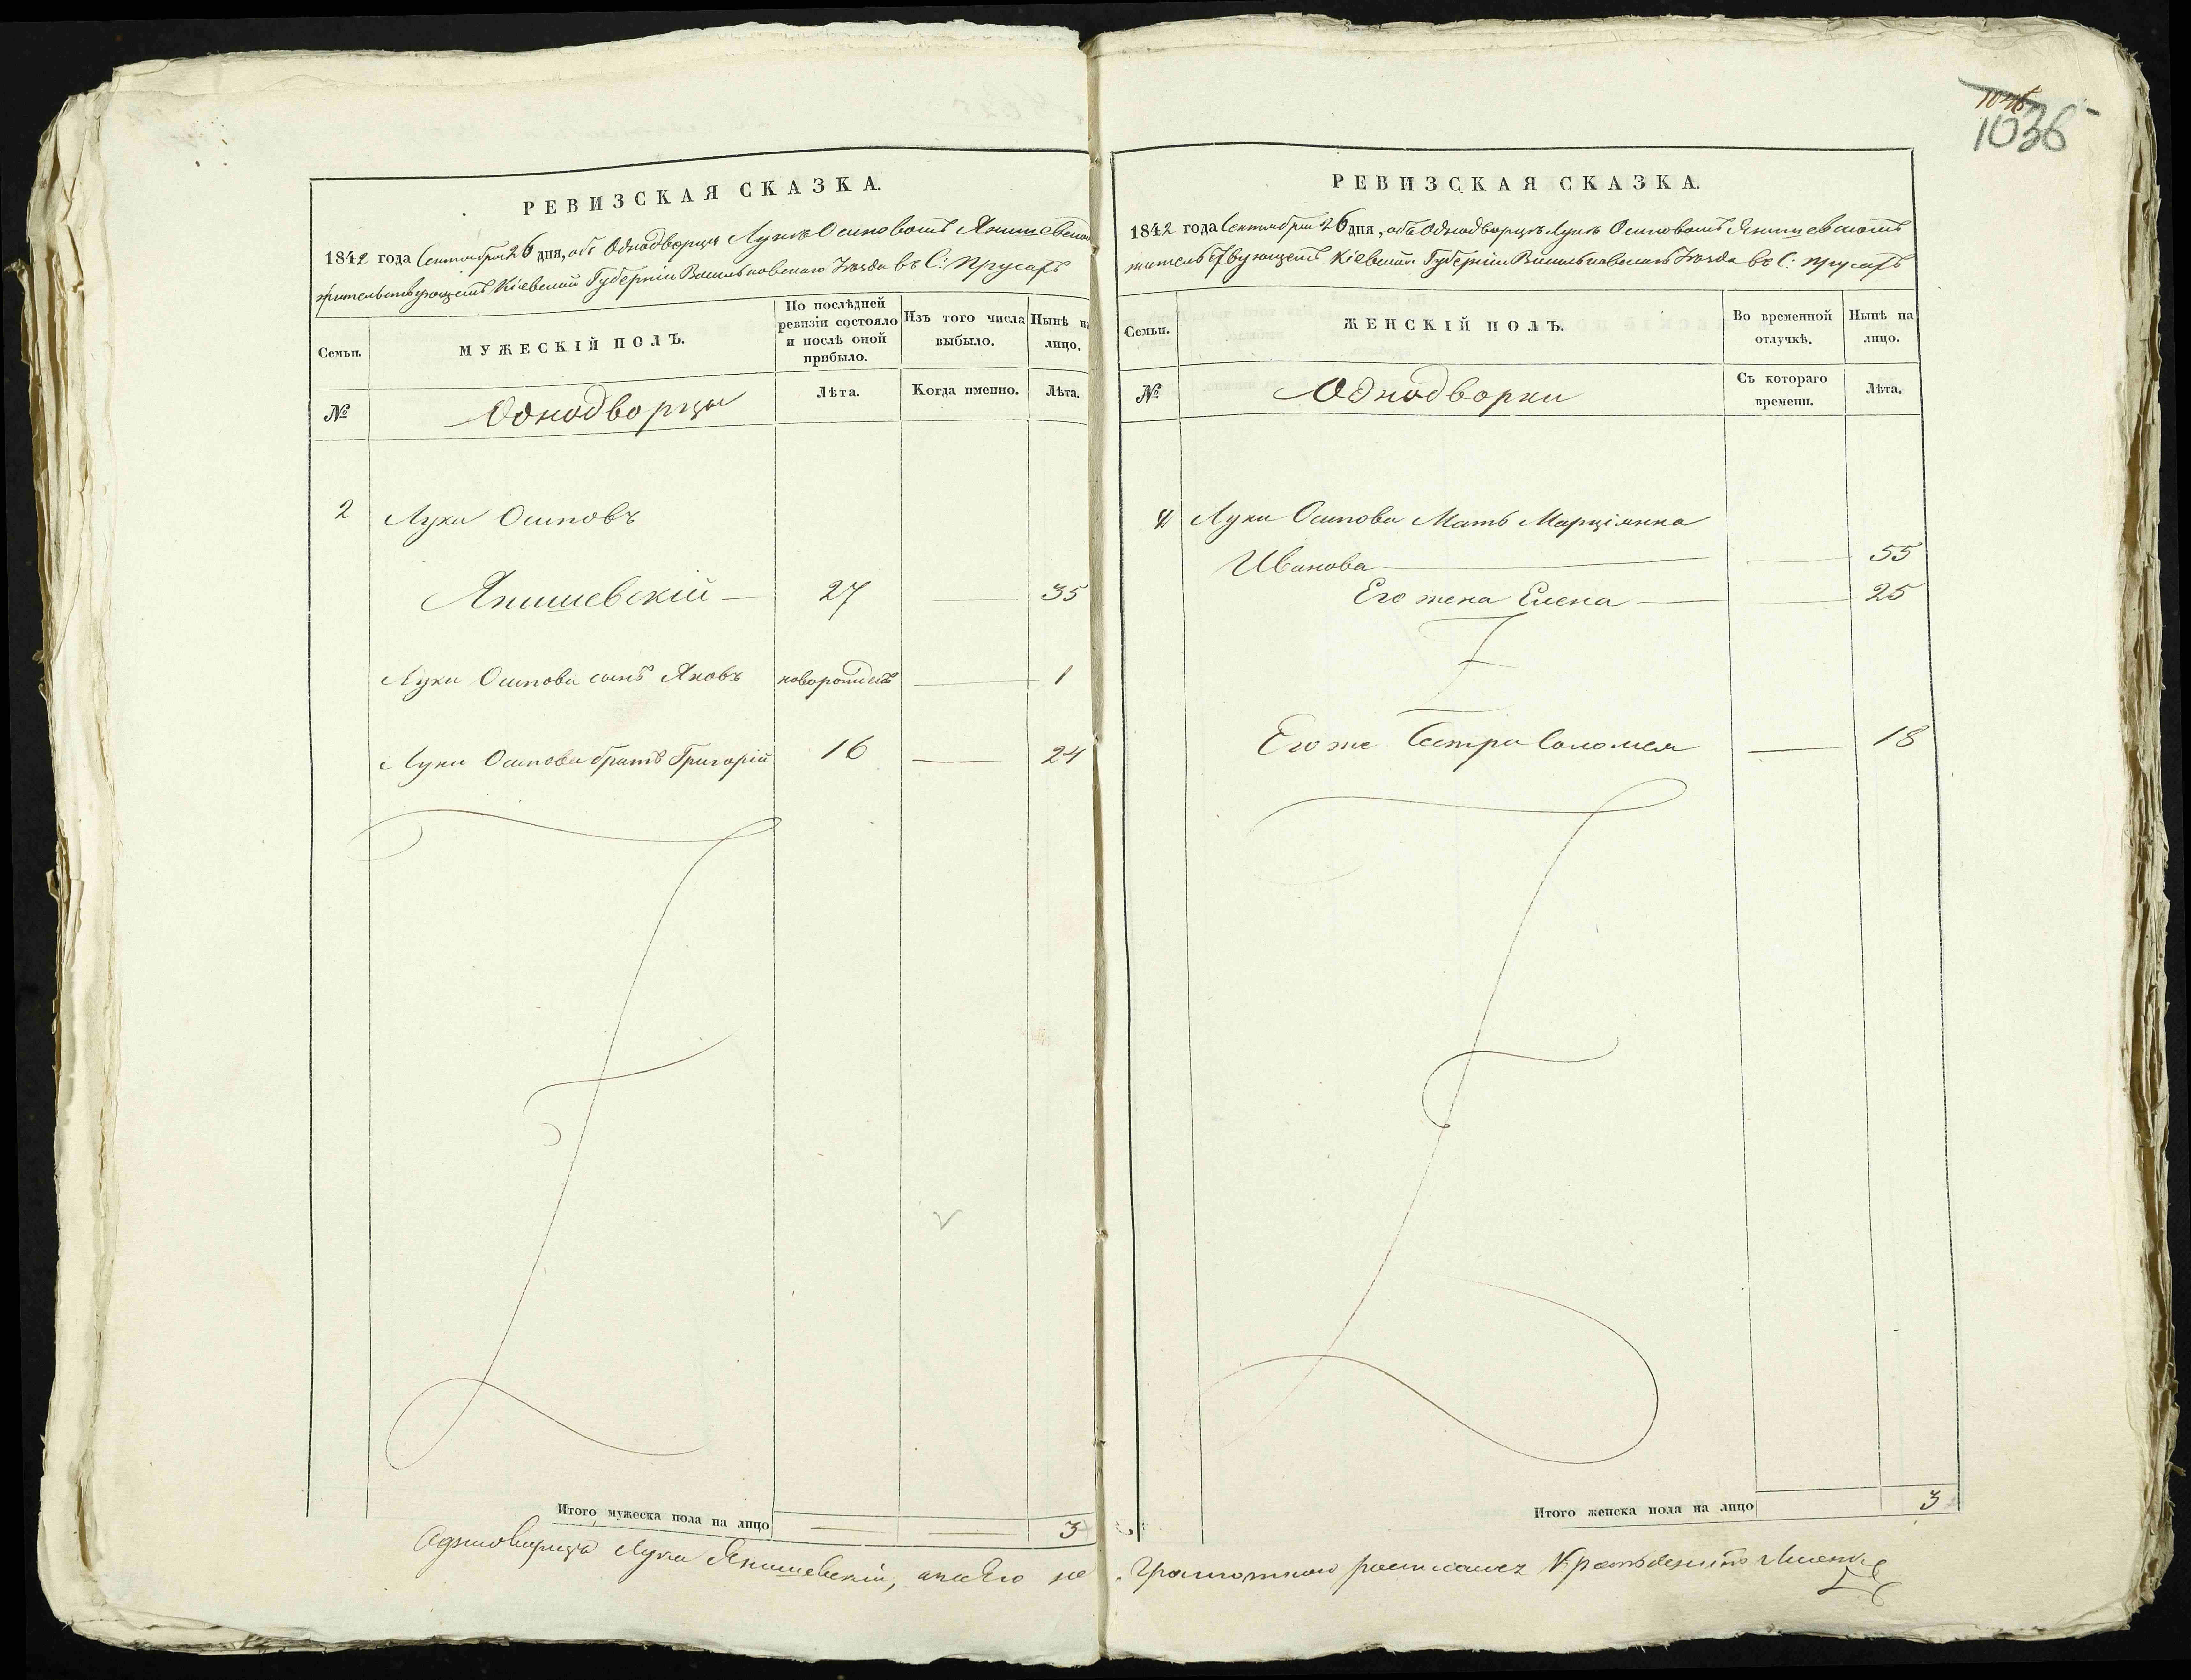 1036
РЕВИЗСКАЯ СКАЗКА.
1842 года Сентября 26 дня, объ Однодворцѣ Лукѣ Осиповомъ Янишевском
жительствующемъ Кіевской Губерніи Васильковскаго Уѣзда въ С: Прусахъ
Семьи.
МУЖЕСКІЙ ПОЛЪ.
По послѣдней ревизіи состояло и послѣ оной прибыло.
Изъ того числа выбыло.
Нынѣ на лицо.
№
Однодворцы
Лѣта.
Когда именно.
Лѣта.
2 Лука Осиповъ
Янишевскій — 27 — 35
Луки Осипова сынъ Яковъ новорожден — 1
Луки Осипова братъ Григорій 16 — 24
Итого мужеска пола на лицо — — 3
РЕВИЗСКАЯ СКАЗКА.
1842 года Сентября 26 дня, объ Однодворцѣ Лукѣ Осиповомъ Янишевскомъ
жительствующемъ Кіевской Губерніи Васильковскаго Уѣзда въ С: Прусахъ
Семьи.
ЖЕНСКІЙ ПОЛЪ.
Во временной отлучкѣ.
Нынѣ на лицо.
№
Однодворки
Съ котораго времени.
Лѣта.
2 Луки Осипова Мать Марціянна
Иванова — — 55
Его жена Елена — — 25
Его же Сестра Саломея — 18
Итого женска пола на лицо 3
Однодворецъ Лука Янишевскій, а за Его не грамотного росписался